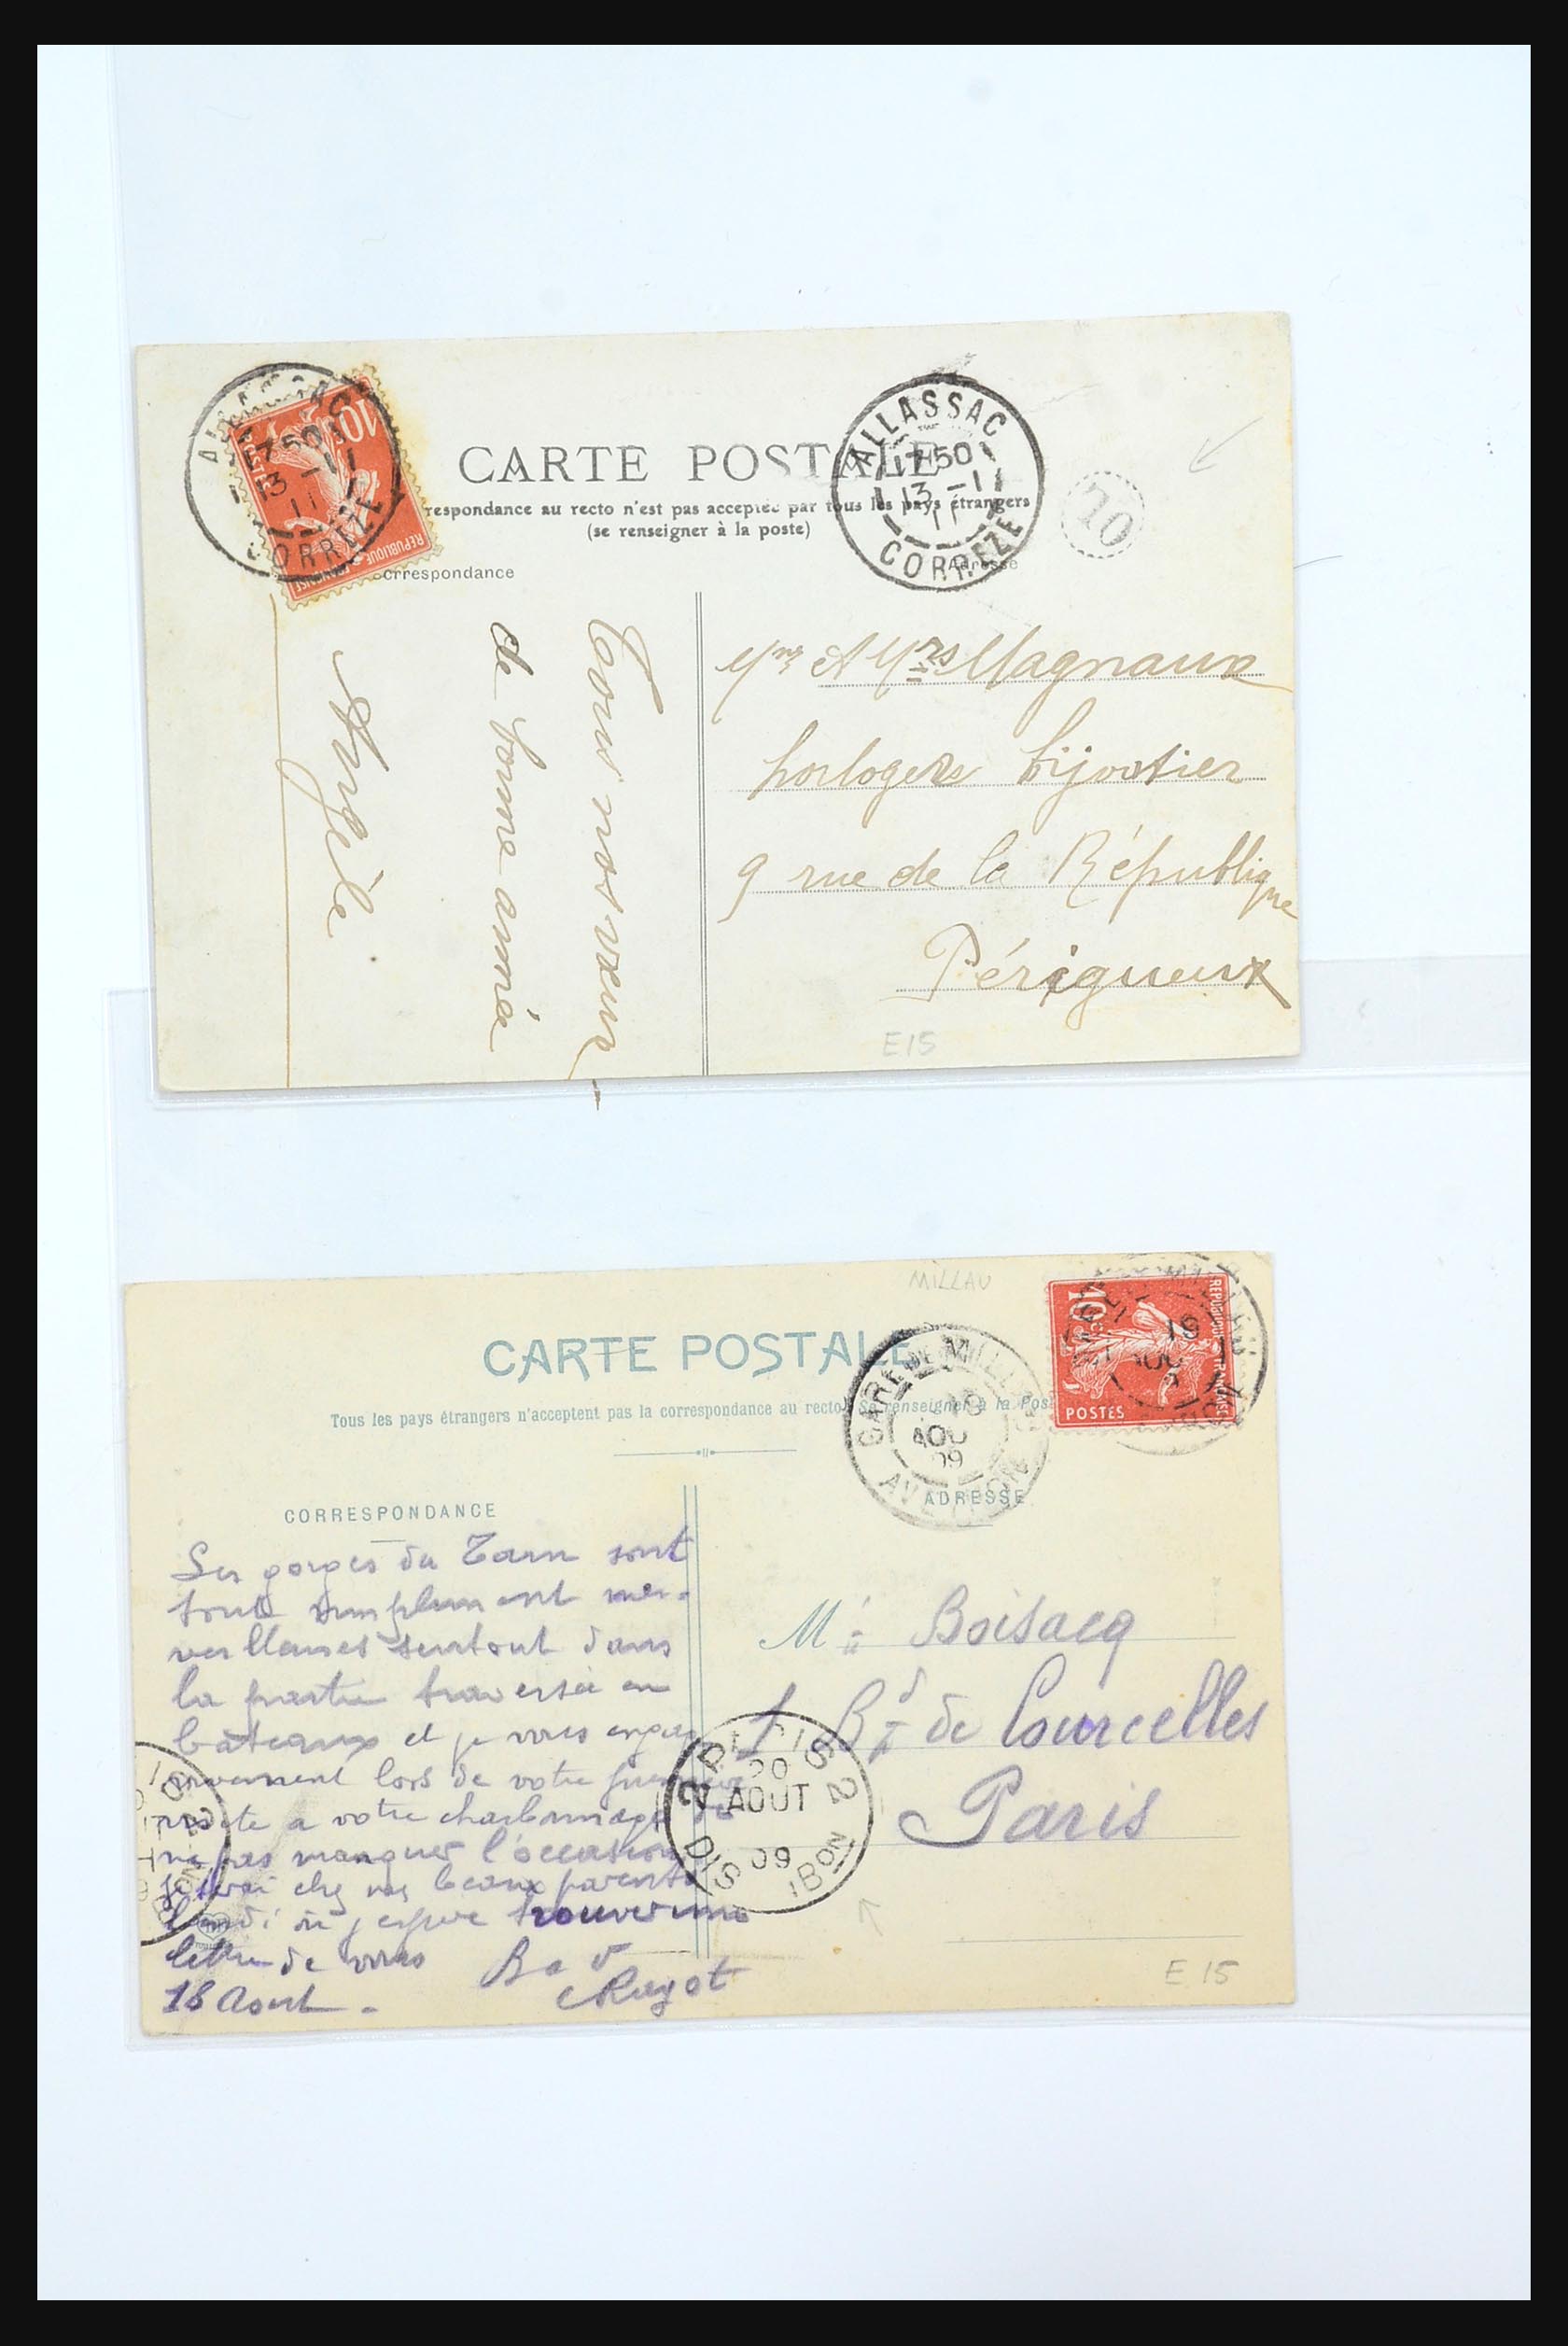 CARTE POSTALE
respondance au recto n'est pas acceptée par tous les pays étrangers
(se renseigner à la poste)
ALLASSAC
17 50
13 -1
11
CORRÈZE
10
POSTES
REPUBLIQUE FRANÇAISE
ALLASSAC
17 50
13 -1
11
CORREZE
OL
orrespondance
Adresse
Tous nos vœux
de bonne année
Angèle
et Magnaux
horlogers bijoutier
9 rue de la République
Périgueux
E15
MILLAU
CARTE POSTALE
Tous les pays étrangers n'acceptent pas la correspondance au recto. Se renseigner à la Pos
GARE DE MILLAU
AOU
09
AVEYRON
10c
REPUBLIQUE FRANÇAISE
POSTES
CORRESPONDANCE
ADRESSE
Les gorges du Tarn sont
tout simplement mer-
veilleuses surtout dans
la partie traversée en
bateaux et je vous engage
vivement lors de votre première
visite a votre charbonnage de
ne pas manquer l'occasion
je serai chez mes beaux parents
lundi où j'espère trouver une
lettre de vous
18 Aout -
Boisacq
1 Bd de Courcelles
Paris
PARIS 2
20
AOUT
09
DISTRIBON
E15